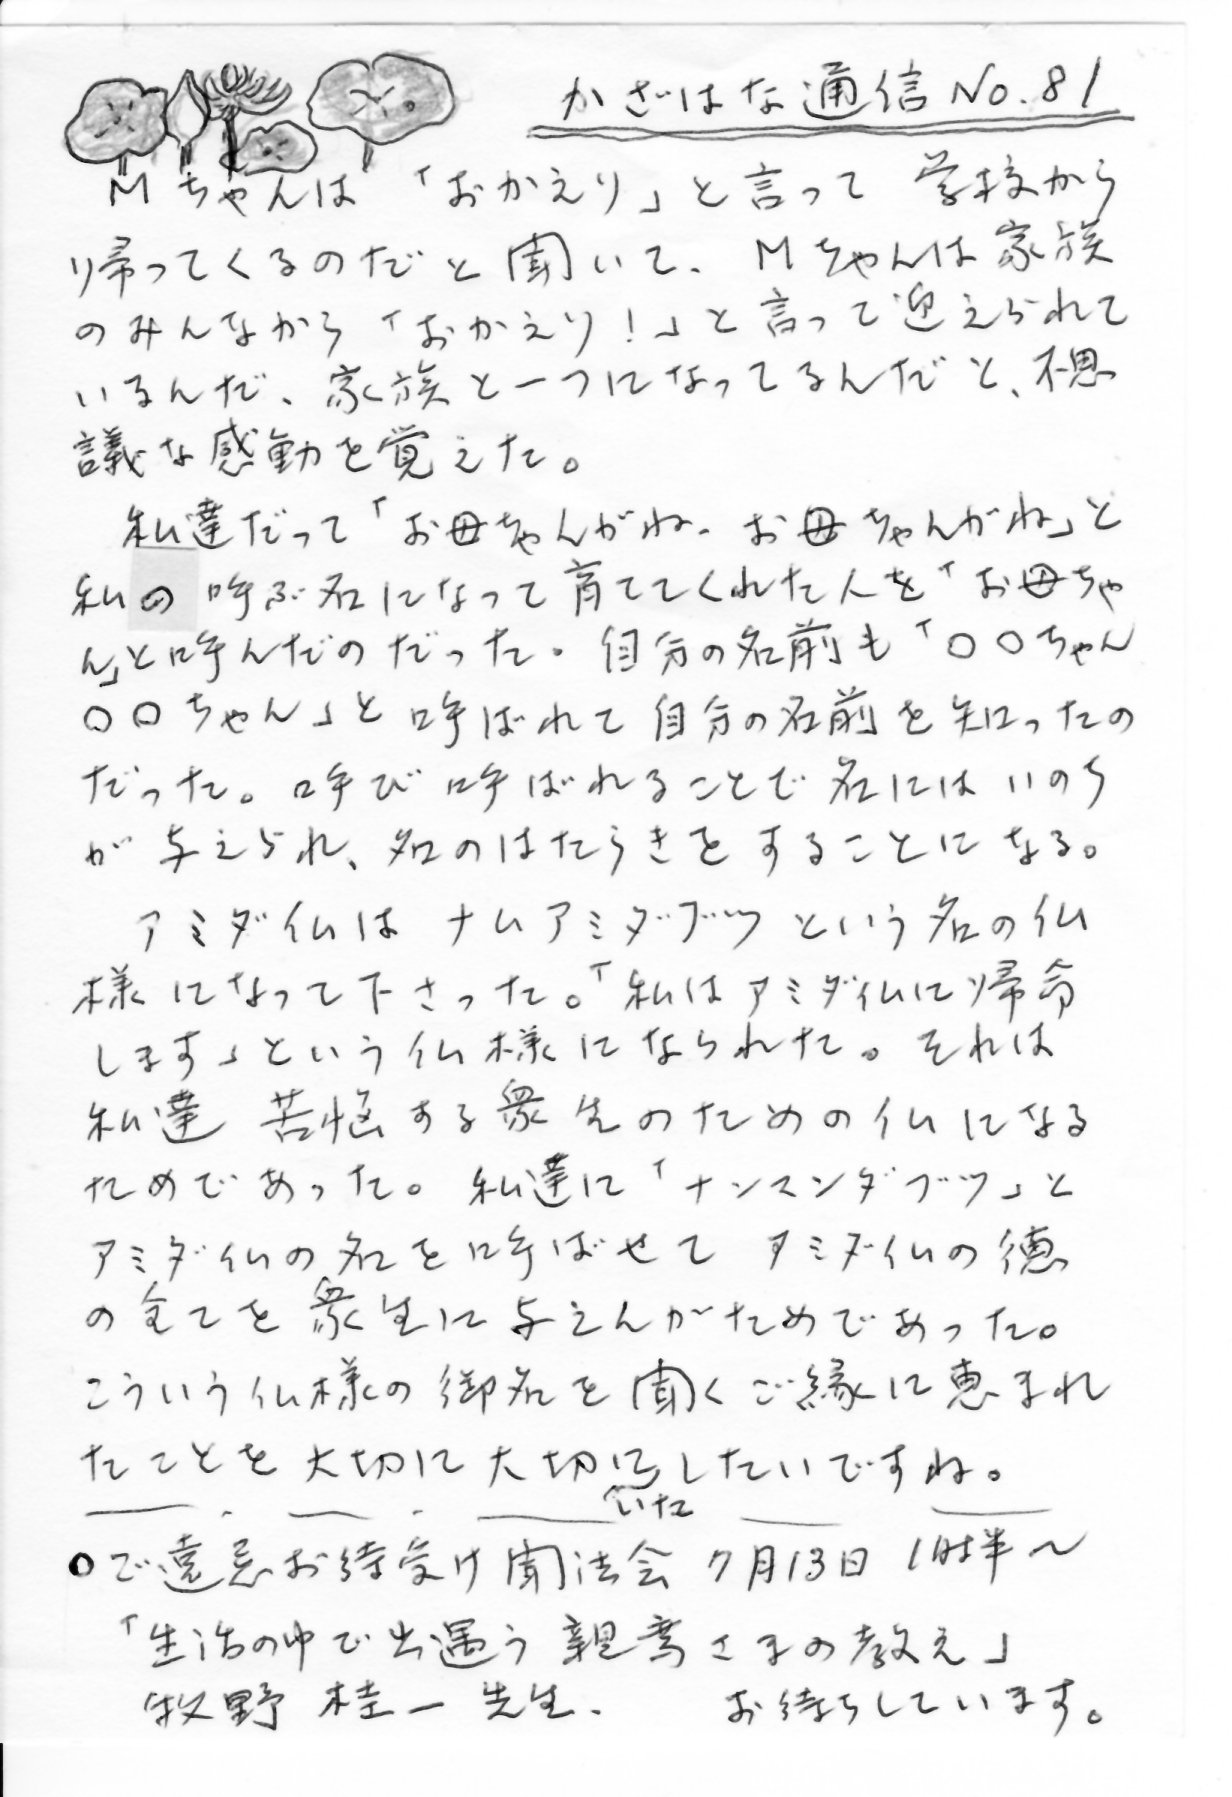 かざはな通信 No.81
Mちゃんは「おかえり」と言って 学校から
帰ってくるのだと聞いて、Mちゃんは家族
のみんなから「おかえり!」と言って迎えられて
いるんだ、家族と一つになってるんだと、不思
議な感動を覚えた。
私達だって「お母ちゃんがね、お母ちゃんがね」と
私の呼ぶ名になって育ててくれた人を「お母ちゃ
ん」と呼んだのだった。自分の名前も「〇〇ちゃん
〇〇ちゃん」と呼ばれて自分の名前を知ったの
だった。呼び呼ばれることで名にはいのち
が与えられ、名のはたらきをすることになる。
アミダ仏は ナムアミダブツ という名の仏
様になって下さった。「私はアミダ仏に帰命
します」という仏様になられた。それは
私達 苦悩する衆生のための仏になる
ためであった。私達に「ナンマンダブツ」と
アミダ仏の名を呼ばせて アミダ仏の徳
の全てを衆生に与えんがためであった。
こういう仏様の御名を聞くご縁に恵まれ
たことを大切に大切にしたいですね。
いた
○ご遠忌お待受け聞法会 7月13日 1時半〜
「生活の中で出遇う 親鸞さまの教え」
牧野 桂一 先生、 お待ちしています。